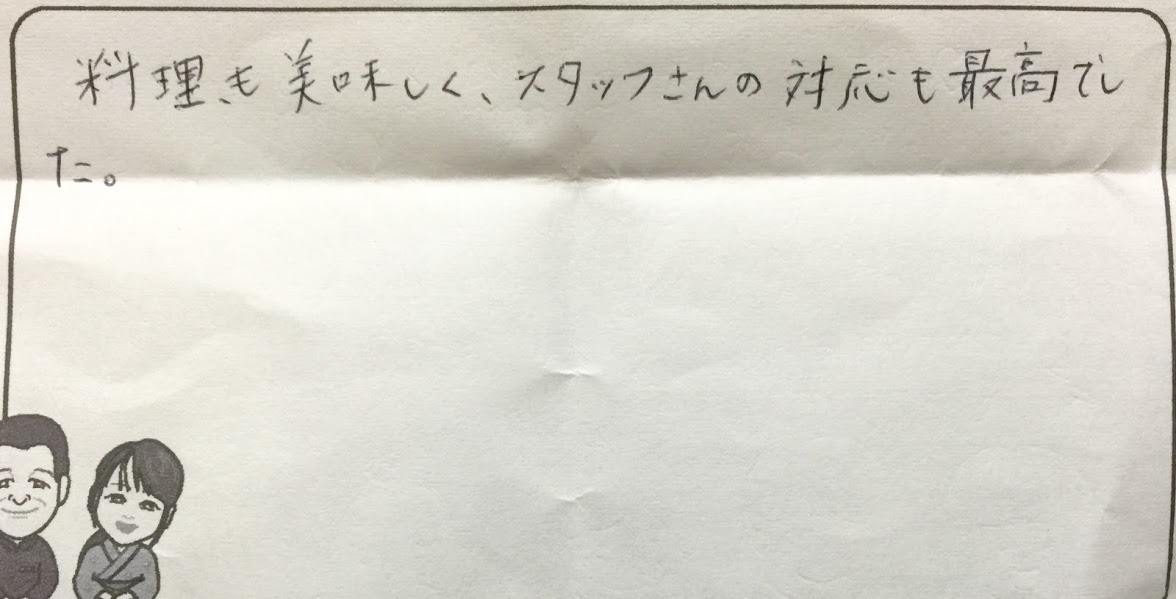 料理も美味しく、スタッフさんの対応も最高でし
た。